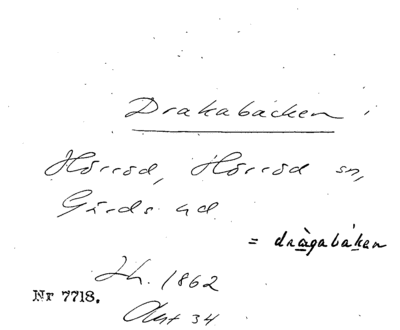 Drakabacken
Hörröd, Hörröd sn,
Gärds hd
= dràgabáken
1862
Nr 7718.
34